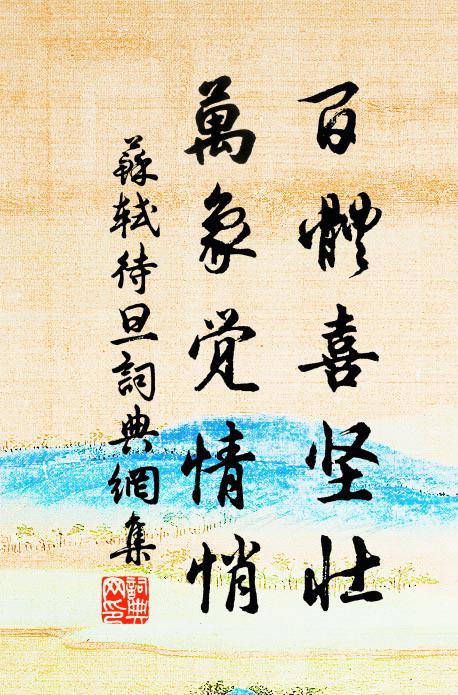 百體喜坚壮
萬象觉情悄
蘇軾待旦詞典網集
詞典